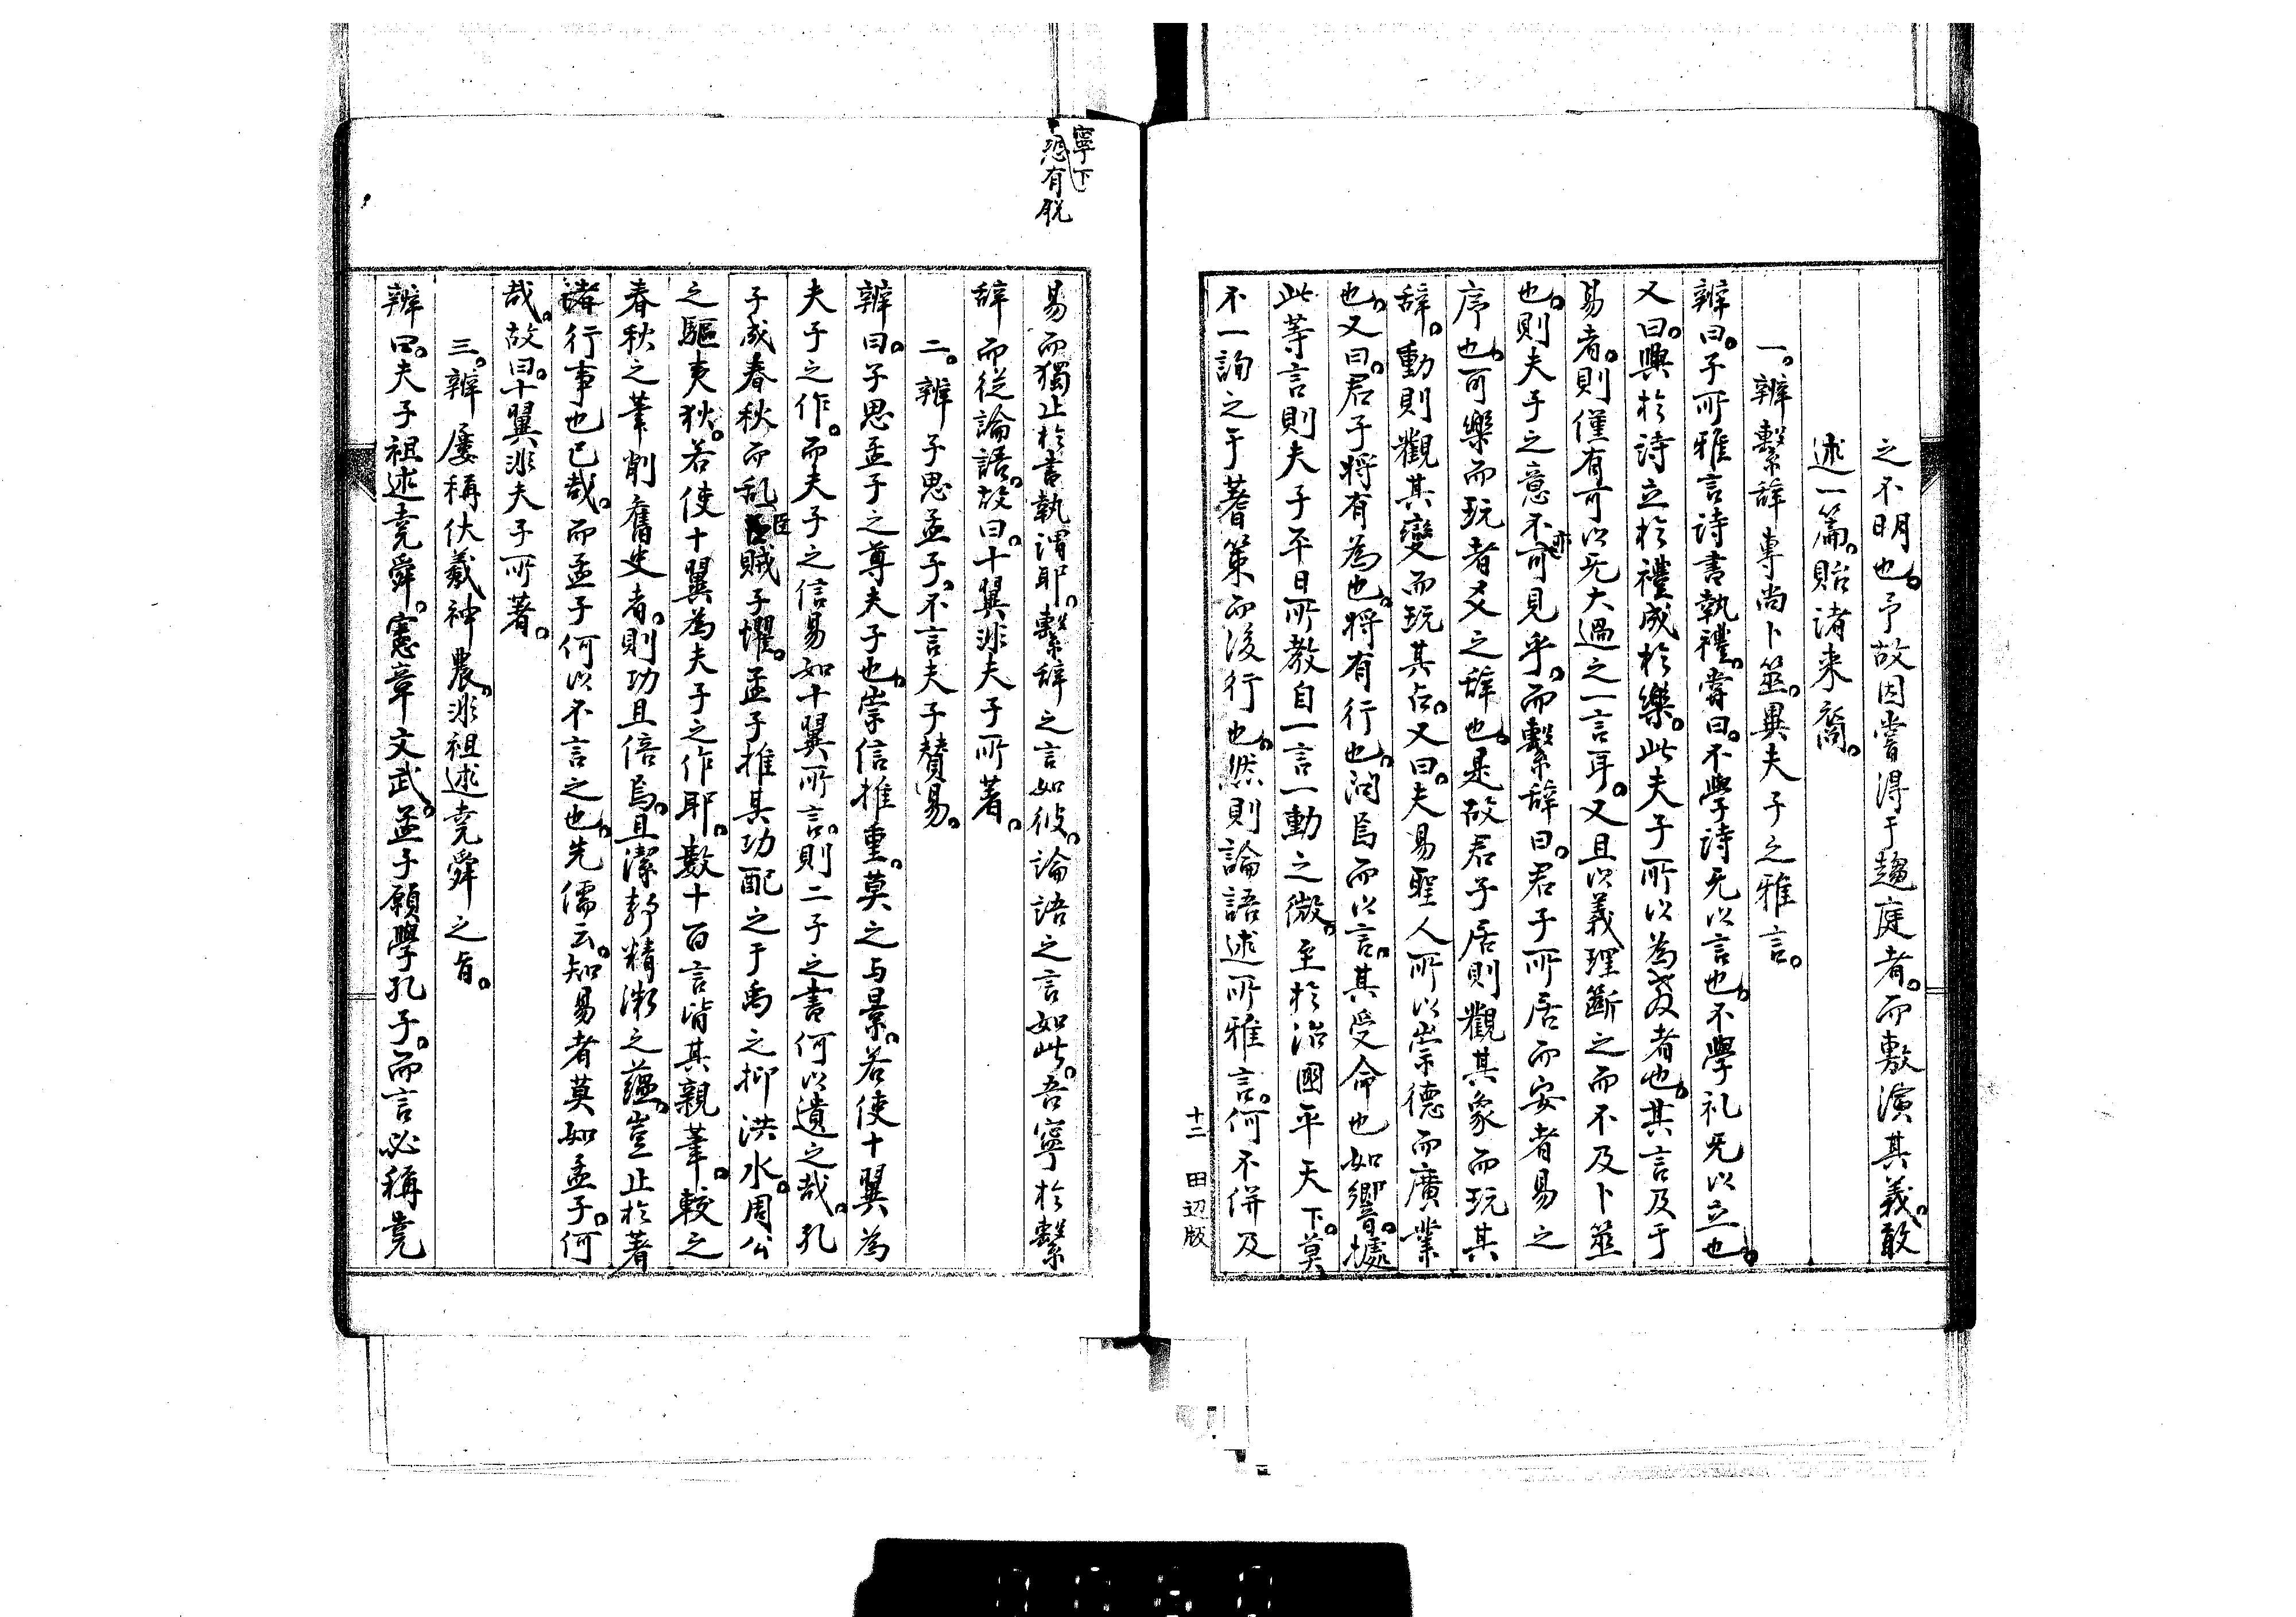 之不明也。予故因嘗得于趨庭者。而敷演其義。敢
述一篇。貽諸来裔。
一。辨繫辞專尚卜筮。異夫子之雅言。
辨曰。子所雅言詩書執禮。嘗曰。不學詩无以言也。不學礼无以立也。
又曰。興於詩立於禮成於樂。此夫子所以為教者也。其言及于
易者。則僅有可以无大過之一言耳。又且以義理斷之而不及卜筮
也。則夫子之意不亦可見乎。而繫辞曰。君子所居而安者易之
序也。所樂而玩者爻之辞也。是故君子居則觀其象而玩其
辞。動則觀其變而玩其占。又曰。夫易聖人所以崇德而廣業
也。又曰。君子将有為也。将有行也。問焉而以言。其受命也如響。據
此等言則夫子平日所教自一言一動之微。至於治國平天下。莫
不一詢之于蓍策而後行也。然則論語述所雅言。何不併及
十二 田辺版
寧下
恐有脱
易而獨止於書執謂耶。繫辞之言如彼。論語之言如此。吾寧於繫
辞而從論語。故曰。十翼非夫子所著。
二。辨子思孟子。不言夫子賛易。
辨曰。子思孟子之尊夫子也。崇信推重。莫之与景。若使十翼為
夫子之作。而夫子之信易如十翼所言。則二子之書何以遺之哉。孔
子成春秋而乱臣賊子懼。孟子推其功配之于禹之抑洪水。周公
之驅夷狄。若使十翼為夫子之作耶。數十百言皆其親筆。較之
春秋之筆削舊史者。則功且倍焉。且潔静精微之蘊。豈止於著
諸行事也已哉。而孟子何以不言之也。先儒云。知易者莫如孟子。何
哉。故曰。十翼非夫子所著。
三。辨屡稱伏羲神農。非祖述堯舜之旨。
辨曰。夫子祖述堯舜。憲章文武。孟子願學孔子。而言必稱堯